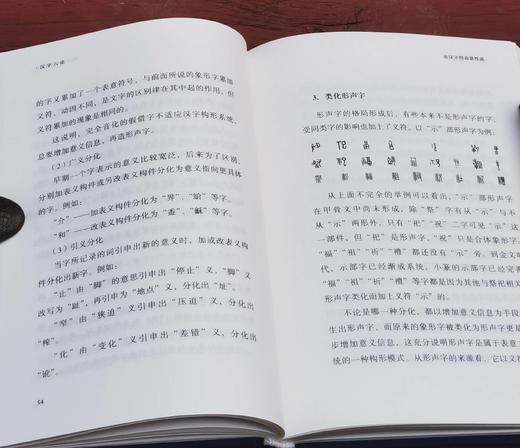 汉字六论
的字义累加了一个表意符号，与前面所说的象形字累加
义符，动因不同，是文字的区别律在其中起的作用，但
义符累加的现象是同样的。
这说明，完全音化的假借字不适应汉字构形系统，
总要增加意义信息，再造形声字。
（2）广义分化
早期一个字表示的意义比较宽泛，后来为了区别，
分别加表义构件或另改表义构件分化为意义指向更具体
的字。例如：
“介”——加表义构件分化为“界”、“蚧”等字。
“和”——改表义构件分化为“盉”、“龢”等字。
（3）引义分化
当字所记录的词引申出新的意义时，加或改表义构
件分化出新字。例如：
“止”由“脚”的意思引申出“停止”义，“脚”义
改写为“趾”，再引申为“地点”义，分化出“址”。
“窄”由“狭迫”义引申出“压迫”义，分化出
“榨”。
“化”由“变化”义引申出“差错”义，分化出
“讹”。
54
论汉字的表意性质
3. 类化形声字
形声字的格局形成后，有些本来不是形声字的字，
受同类字的影响也加上了义符。以“示”部形声字为例：
从上面不完全的举例可以看出，“示”部形声字
在甲骨文中尚未形成。除“祭”字有从“示”与不
从“示”两形外，只有“祀”“祝”二字可见“示”这
一部件，但“祀”是形声字，“祝”只是合体象形字，
“福”“祖”“祈”“禮”等字都还没有“示”旁。到金文时
代，示部字已经渐成系统，小篆的示部字已经完善
“福”“祖”“祈”“禮”等字都是因为其他与祭祀相关
形声字类化而加上义符“示”的。
不论是哪一种分化，都以增加意义信息为手段
生出形声字，而原来的象形字被类化为形声字更是
步增加意义信息，这充分说明形声字是属于表意
统的一种构形模式。从形声字的来源看，它以义符